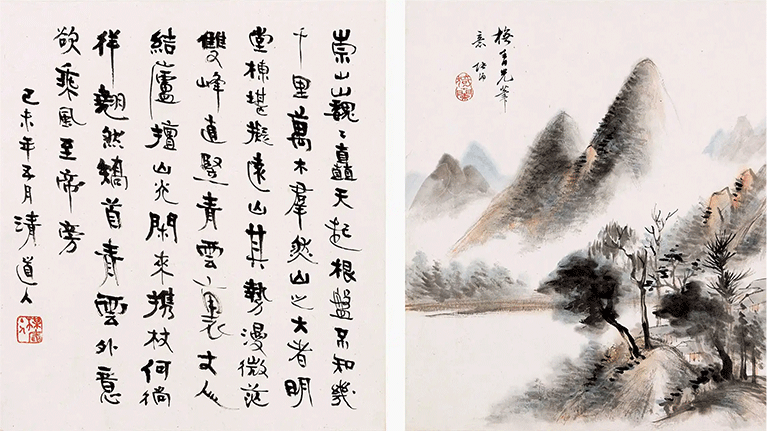 崇山巍〻天起根盤不知幾
千里萬木羣然山之大者明
堂棟堪擬遠山其勢漫微茫
雙峰直豎青雲裏丈人
結廬擅山光閑來攜杖何徜
徉翹然矯首青雲外意
欲乘風至帝旁
己未年月清道人
梅兄筆
意